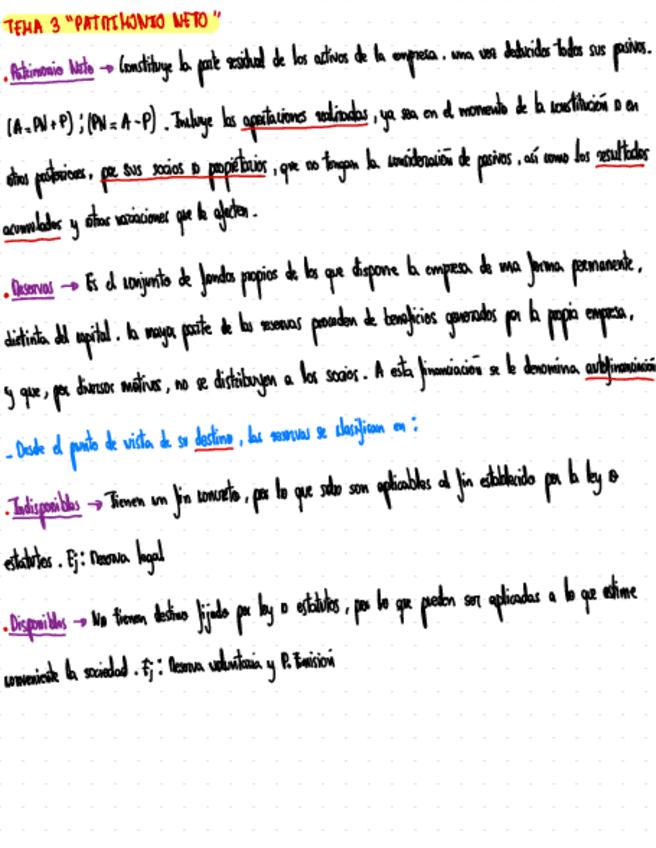 TEMA 3 "PATRIMONIO NETO"
. Patrimonio Neto → Constituye la parte residual de los activos de la empresa. una vez deducidos todos sus pasivos.
(A=PN+P) ; (PN=A-P). Incluye las aportaciones realizadas, ya sea en el momento de la constitución o en
otros posteriores, por sus socios o propietarios, que no tengan la consideración de pasivos, así como los resultados
acumulados y otras variaciones que le afecten.
. Reservas → Es el conjunto de fondos propios de los que dispone la empresa de una forma permanente,
distinta del capital. la mayor parte de las reservas proceden de beneficios generados por la propia empresa,
y que, por diversos motivos, no se distribuyen a los socios. A esta financiación se le denomina autofinanciación
- Desde el punto de vista de su destino, las reservas se clasifican en :
. Indisponibles → Tienen un fin concreto, por lo que solo son aplicables al fin establecido por la ley o
estatutos. Ej: Reserva legal
. Disponibles → No tienen destino fijado por ley o estatutos, por lo que pueden ser aplicadas a lo que estime
conveniente la sociedad. Ej: Reserva voluntaria y P. Emisión